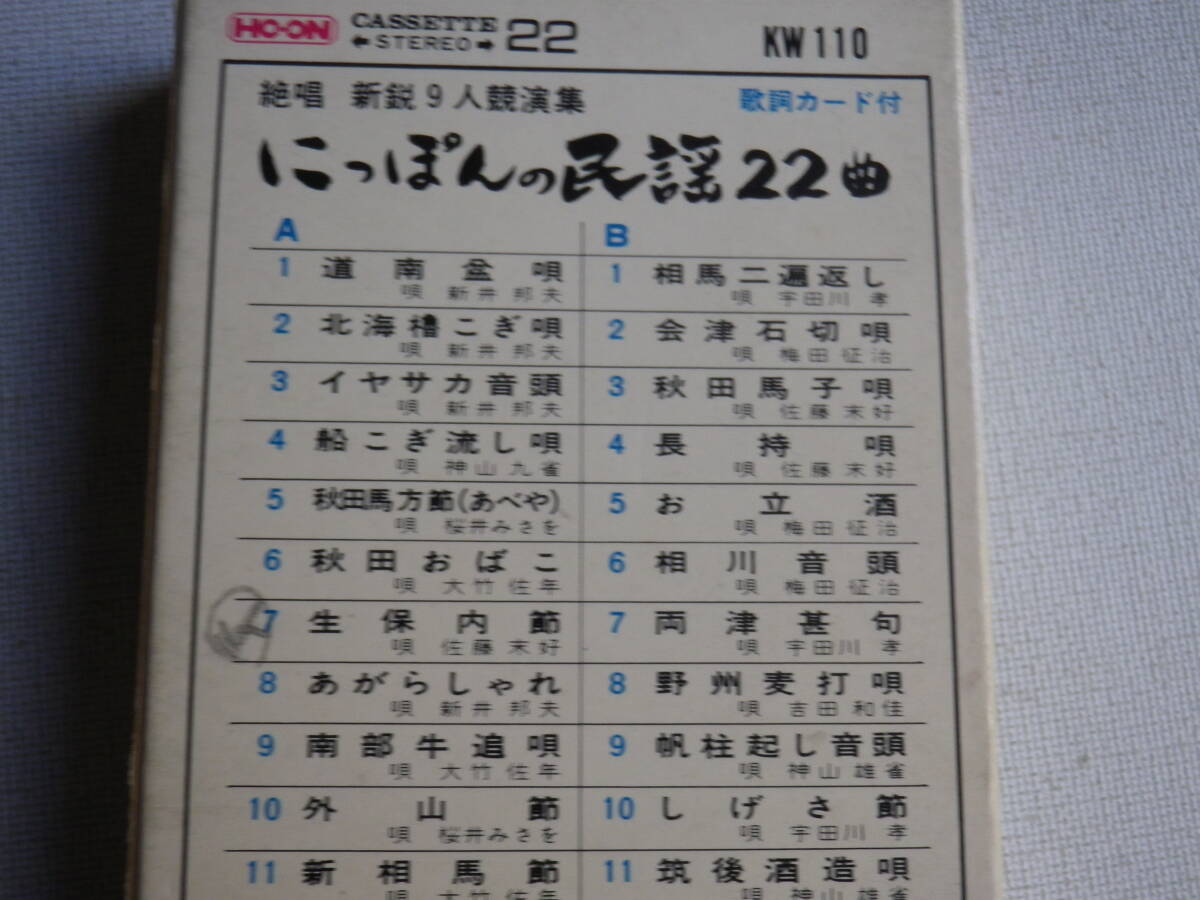 HO-ON CASSETTE 22 KW110
←STEREO→
絶唱 新鋭9人競演集 歌詞カード付
にっぽんの民謡22曲
A
1 道南盆唄
唄 新井邦夫
2 北海櫓こぎ唄
唄 新井邦夫
3 イヤサカ音頭
唄 新井邦夫
4 船こぎ流し唄
唄 神山九雀
5 秋田馬方節(あべや)
唄 桜井みさを
6 秋田おばこ
唄 大竹佐年
7 生保内節
唄 佐藤末好
8 あがらしゃれ
唄 新井邦夫
9 南部牛追唄
唄 大竹佐年
10 外山節
唄 桜井みさを
11 新相馬節
唄 大竹佐年
B
1 相馬二遍返し
唄 宇田川孝
2 会津石切唄
唄 梅田征治
3 秋田馬子唄
唄 佐藤末好
4 長持唄
唄 佐藤末好
5 お立酒
唄 梅田征治
6 相川音頭
唄 梅田征治
7 両津甚句
唄 宇田川孝
8 野州麦打唄
唄 吉田和佳
9 帆柱起し音頭
唄 神山雄雀
10 しげさ節
唄 宇田川孝
11 筑後酒造唄
唄 神山雄雀